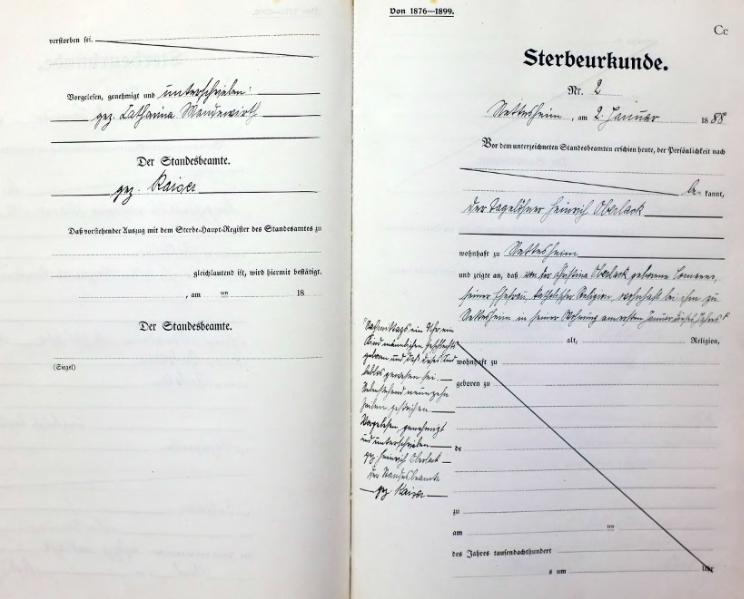 verstorben sei.
Vorgelesen, genehmigt und unterschrieben:
gez. Catharina
Der Standesbeamte.
gez. Kaiser
Daß vorstehender Auszug mit dem Sterbe-Haupt-Register des Standesamtes zu
gleichlautend ist, wird hiermit bestätigt.
, am ten 18
Der Standesbeamte.
(Siegel)
Von 1876—1899.
Cc
Sterbeurkunde.
Nr. 2
Nettesheim, am 2. Januar 1888
Vor dem unterzeichneten Standesbeamten erschien heute, der Persönlichkeit nach
be kannt,
der Tagelöhner Heinrich Oberlack
wohnhaft zu Nettesheim
und zeigte an, daß von der Christina Oberlack geborene
seiner Ehefrau, katholischer Religion, wohnhaft bei ihm zu
Nettesheim in seiner Wohnung am ersten Januar dieses Jahres
alt, Religion,
Nachmittags ein Uhr ein
Kind männlichen Geschlechts
geboren und daß dieses Kind
wohnhaft zu
leblos gewesen sei.
geboren zu
Vorstehend neunzehn
Zeilen gestrichen
Vorgelesen, genehmigt
und unterschrieben
de
gez. Heinrich Oberlack
Der Standesbeamte
gez. Kaiser
zu
am ten
des Jahres tausendachthundert
s um Uhr